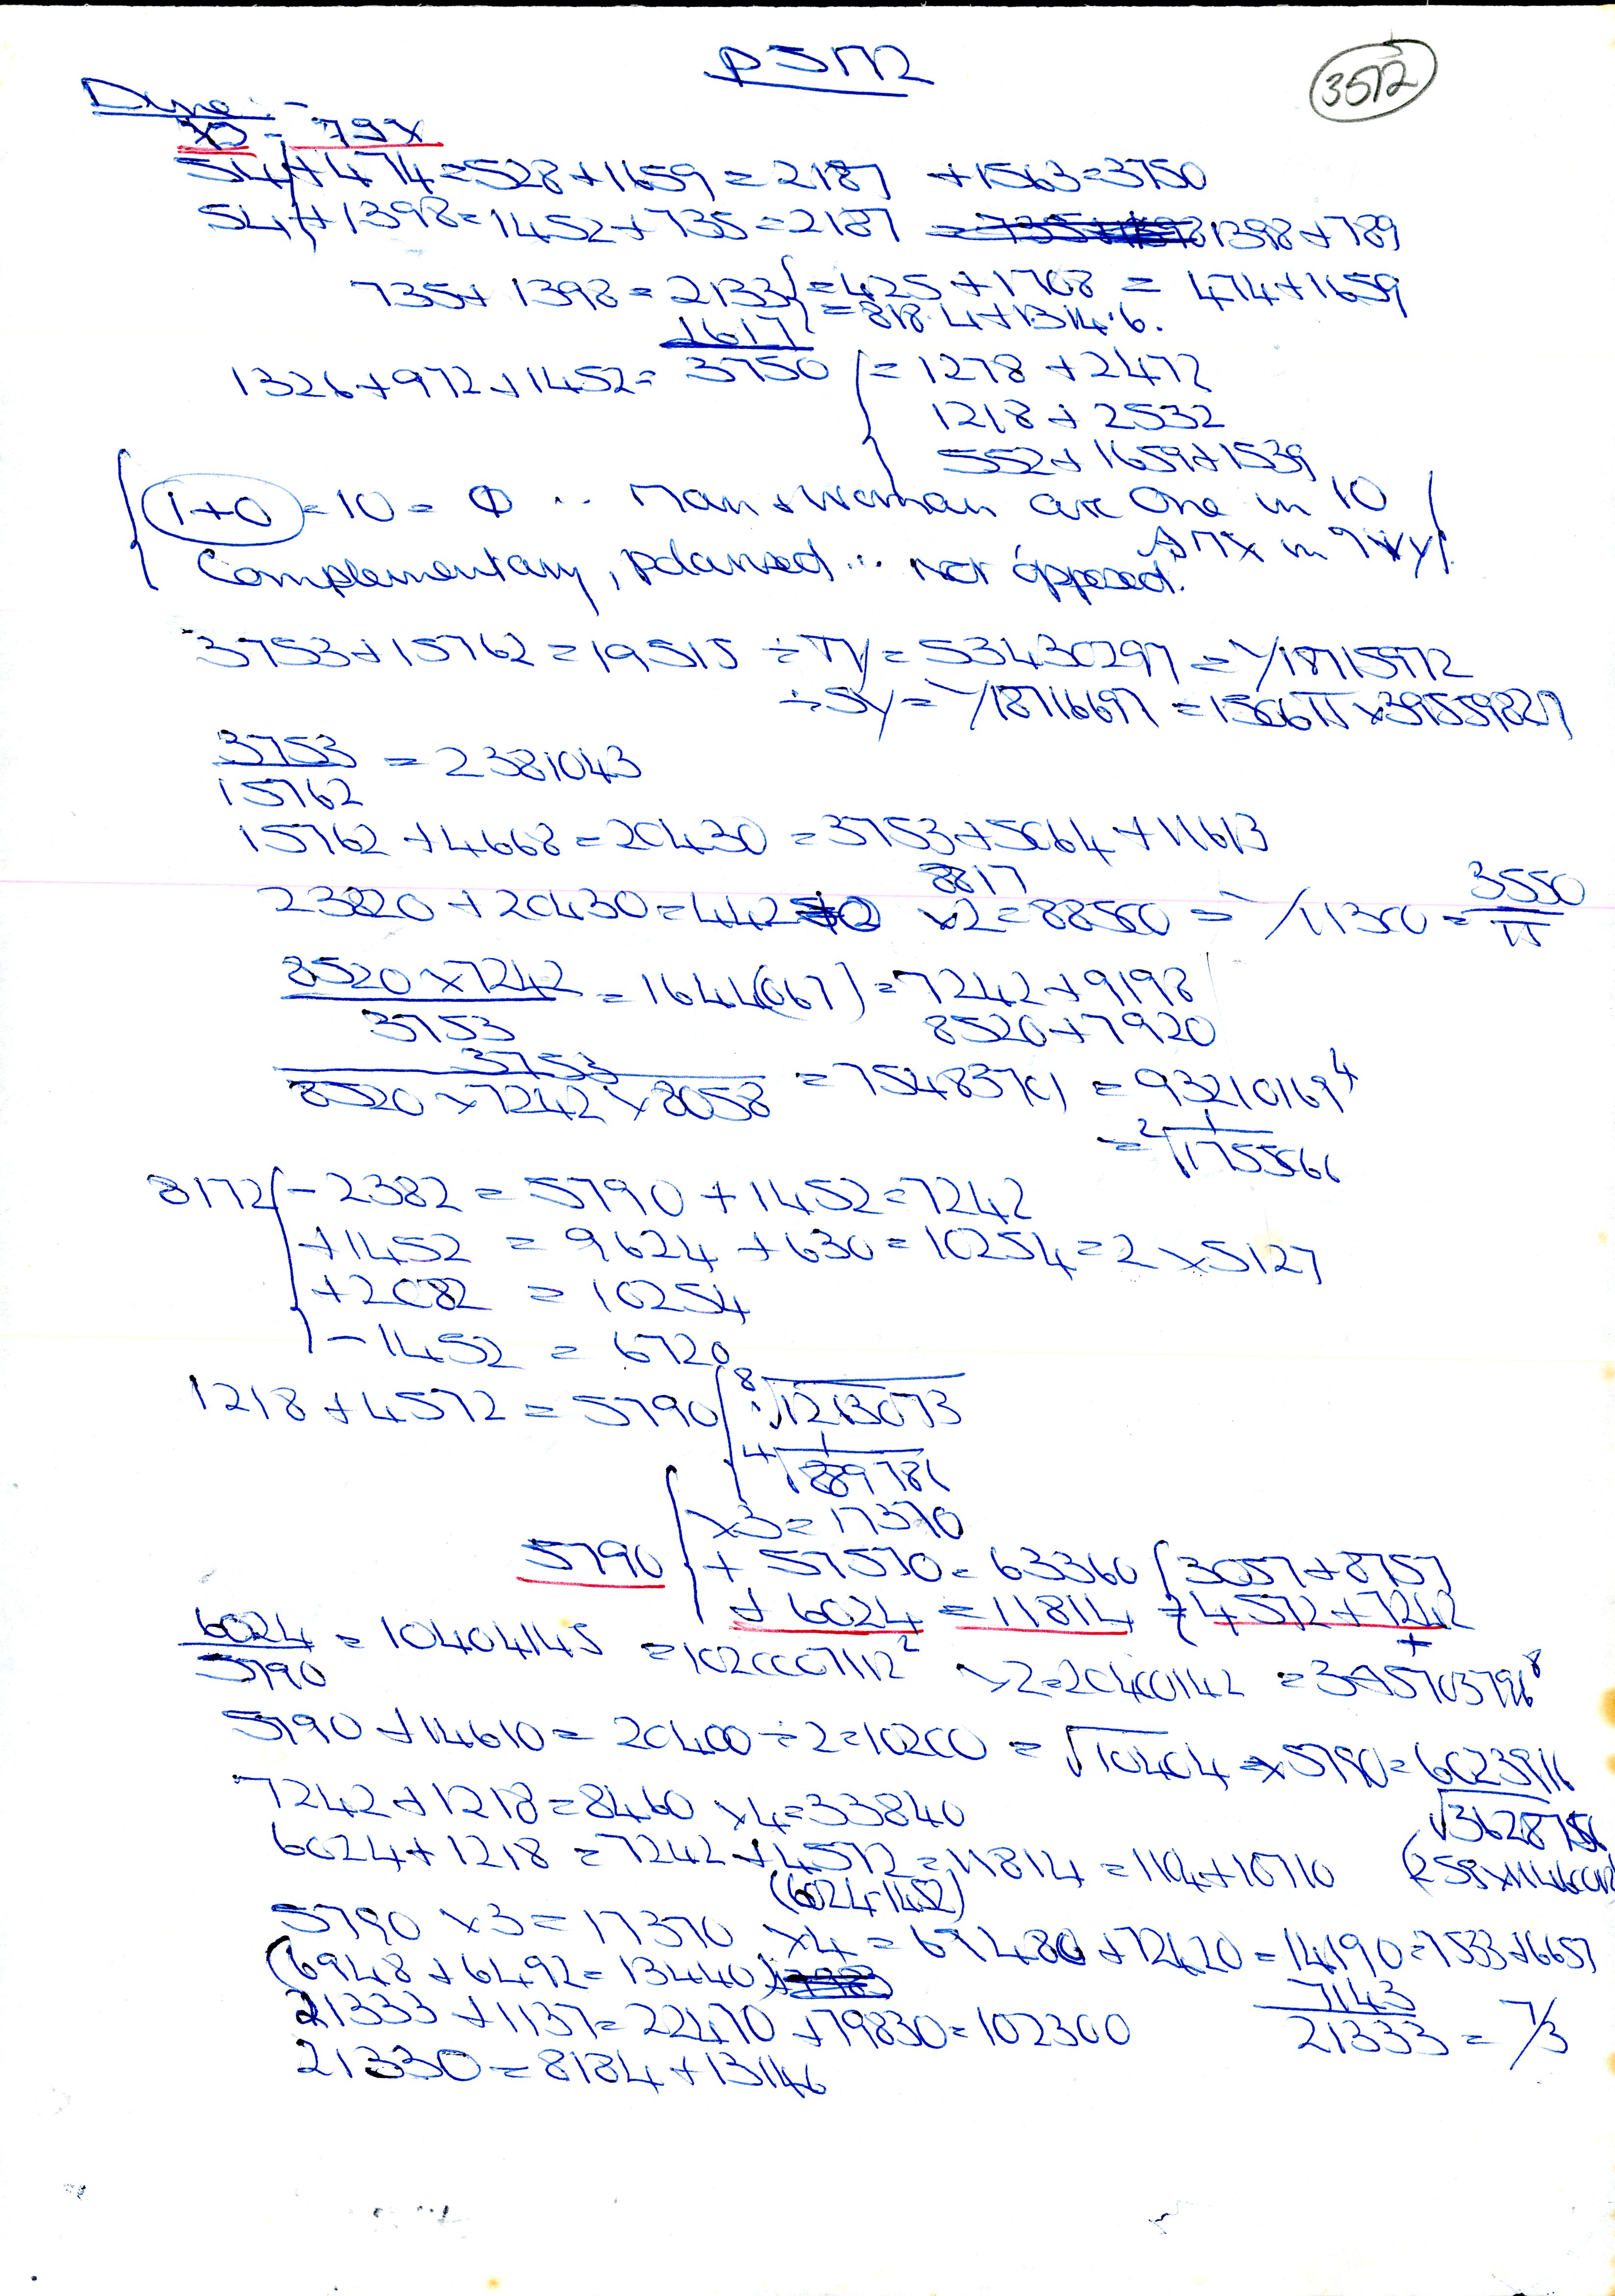 p3572
3572
54 + 474 = 528 + 1659 = 2187 + 1563 = 3750
54 + 1398 = 1452 + 735 = 2187 = 1398 + 789
735 + 1398 = 2133 { = 425 + 1708 = 474 + 1659
= 818.4 + 1314.6.
1617
1326 + 972 + 1452 = 3750 { = 1278 + 2472
1218 + 2532
552 + 1659 + 1539
{ 1+0 = 10 = Φ ∴ Man + Woman are One in 10 }
Complementary, polarised ∴ not opposed.
3753 + 15762 = 19515 ÷ πy = 53430297 = Y/18715972
÷ 5y = Y/18716697 = 1566π × 39559827
3753/15762 = 2381043
15762 + 4668 = 20430 = 3753 + 5064 + 11613
8817
23820 + 20430 = 44250 × 2 = 88500 = Y/11300 = 3550/π
8520 × 7242 / 3753 = 1644(067) = 7242 + 9198
8520 + 7920
3753 / 8520 × 7242 × 8058 = 75483701 = 93210169⁴
= ²√1/1755066
8172 { - 2382 = 5790 + 1452 = 7242
+ 1452 = 9624 + 630 = 10254 = 2 × 5127
+ 2082 = 10254
- 1452 = 6720
1218 + 4572 = 5790 { ⁸√1263073
⁴√1/889786
× 3 = 17370
5790 { + 57570 = 63360 { 3057 + 8757
+ 6024 = 11814 = 4572 + 7242
6024/5790 = 10404145 = 1020007112² × 2 = 20400142
5790 + 14610 = 20400 ÷ 2 = 10200 = √10404 × 5790 = 6023916
7242 + 1218 = 8460 × 4 = 33840
6024 + 1218 = 7242 + 4572 = 11814 = 1104 + 10710
(6024-1452)
5790 × 3 = 17370 × 4 = 69480 + 72420 = 14190 = 7533 + 6657
(6948 + 6492 = 13440)
21333 + 1137 = 22470 + 79830 = 102300
7143/21333 = 7/3
21330 = 8184 + 13146